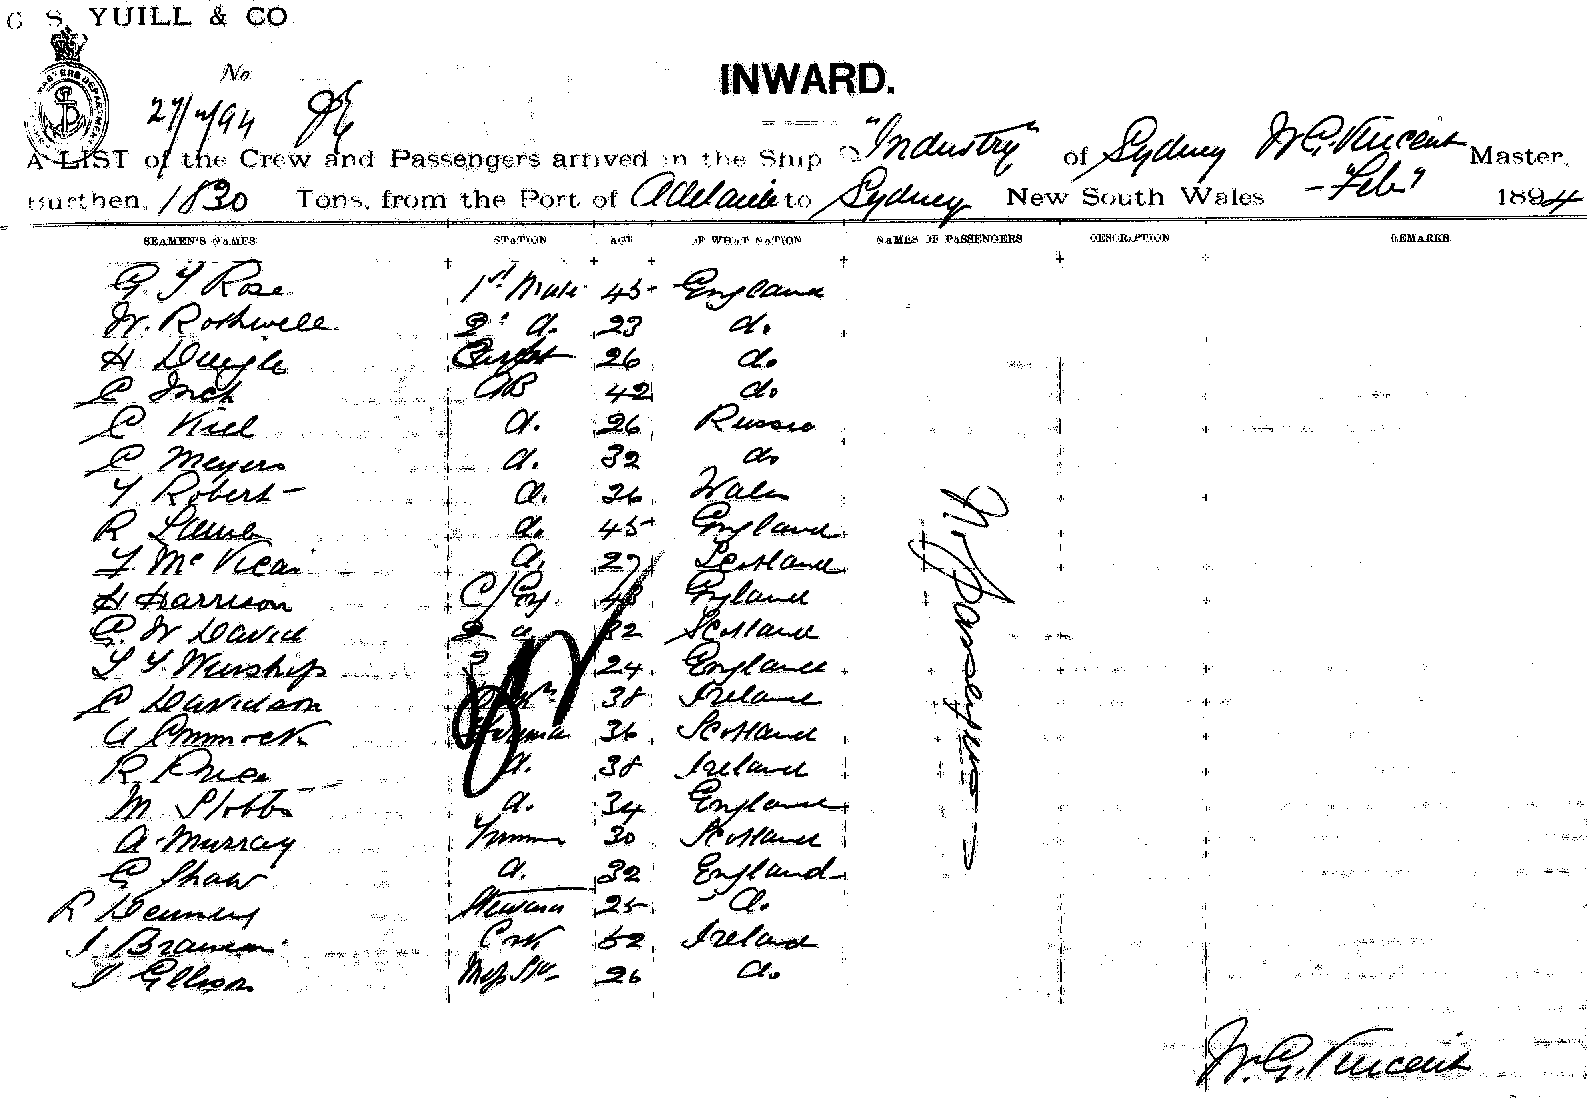 C S. YUILL & CO
No
INWARD.
27/2/94
A LIST of the Crew and Passengers arrived in the Ship "Industry" of Sydney W G. Vincent Master,
Burthen, 1830 Tons, from the Port of Adelaide to Sydney New South Wales - Feby 1894
SEAMEN'S NAMES STATION AGE OF WHAT NATION NAMES OF PASSENGERS DESCRIPTION REMARKS
Rose 1st Mate 45 England
W. Rothwell 2d d. 23 do
H 26 do
C Inch AB 42 do
C Kiel d. 26 Russia
C Meyers d. 32 do
Robert d. 26 Wales
R Lamb d. 45 England
Mc Vicar d. 27 Scotland
H Harrison 48 England
G. W David 2 d 32 Scotland
Winship 24 England
C Davidson 38 Ireland
A 36 Scotland
R Price d. 38 Ireland
M Stobbs d. 34 England
A Murray 30 Scotland
G Shaw d. 32 England
R Steward 25 d.
J. 52 Ireland
J Ellison Mess 26 do
No Passengers
W. G. Vincent